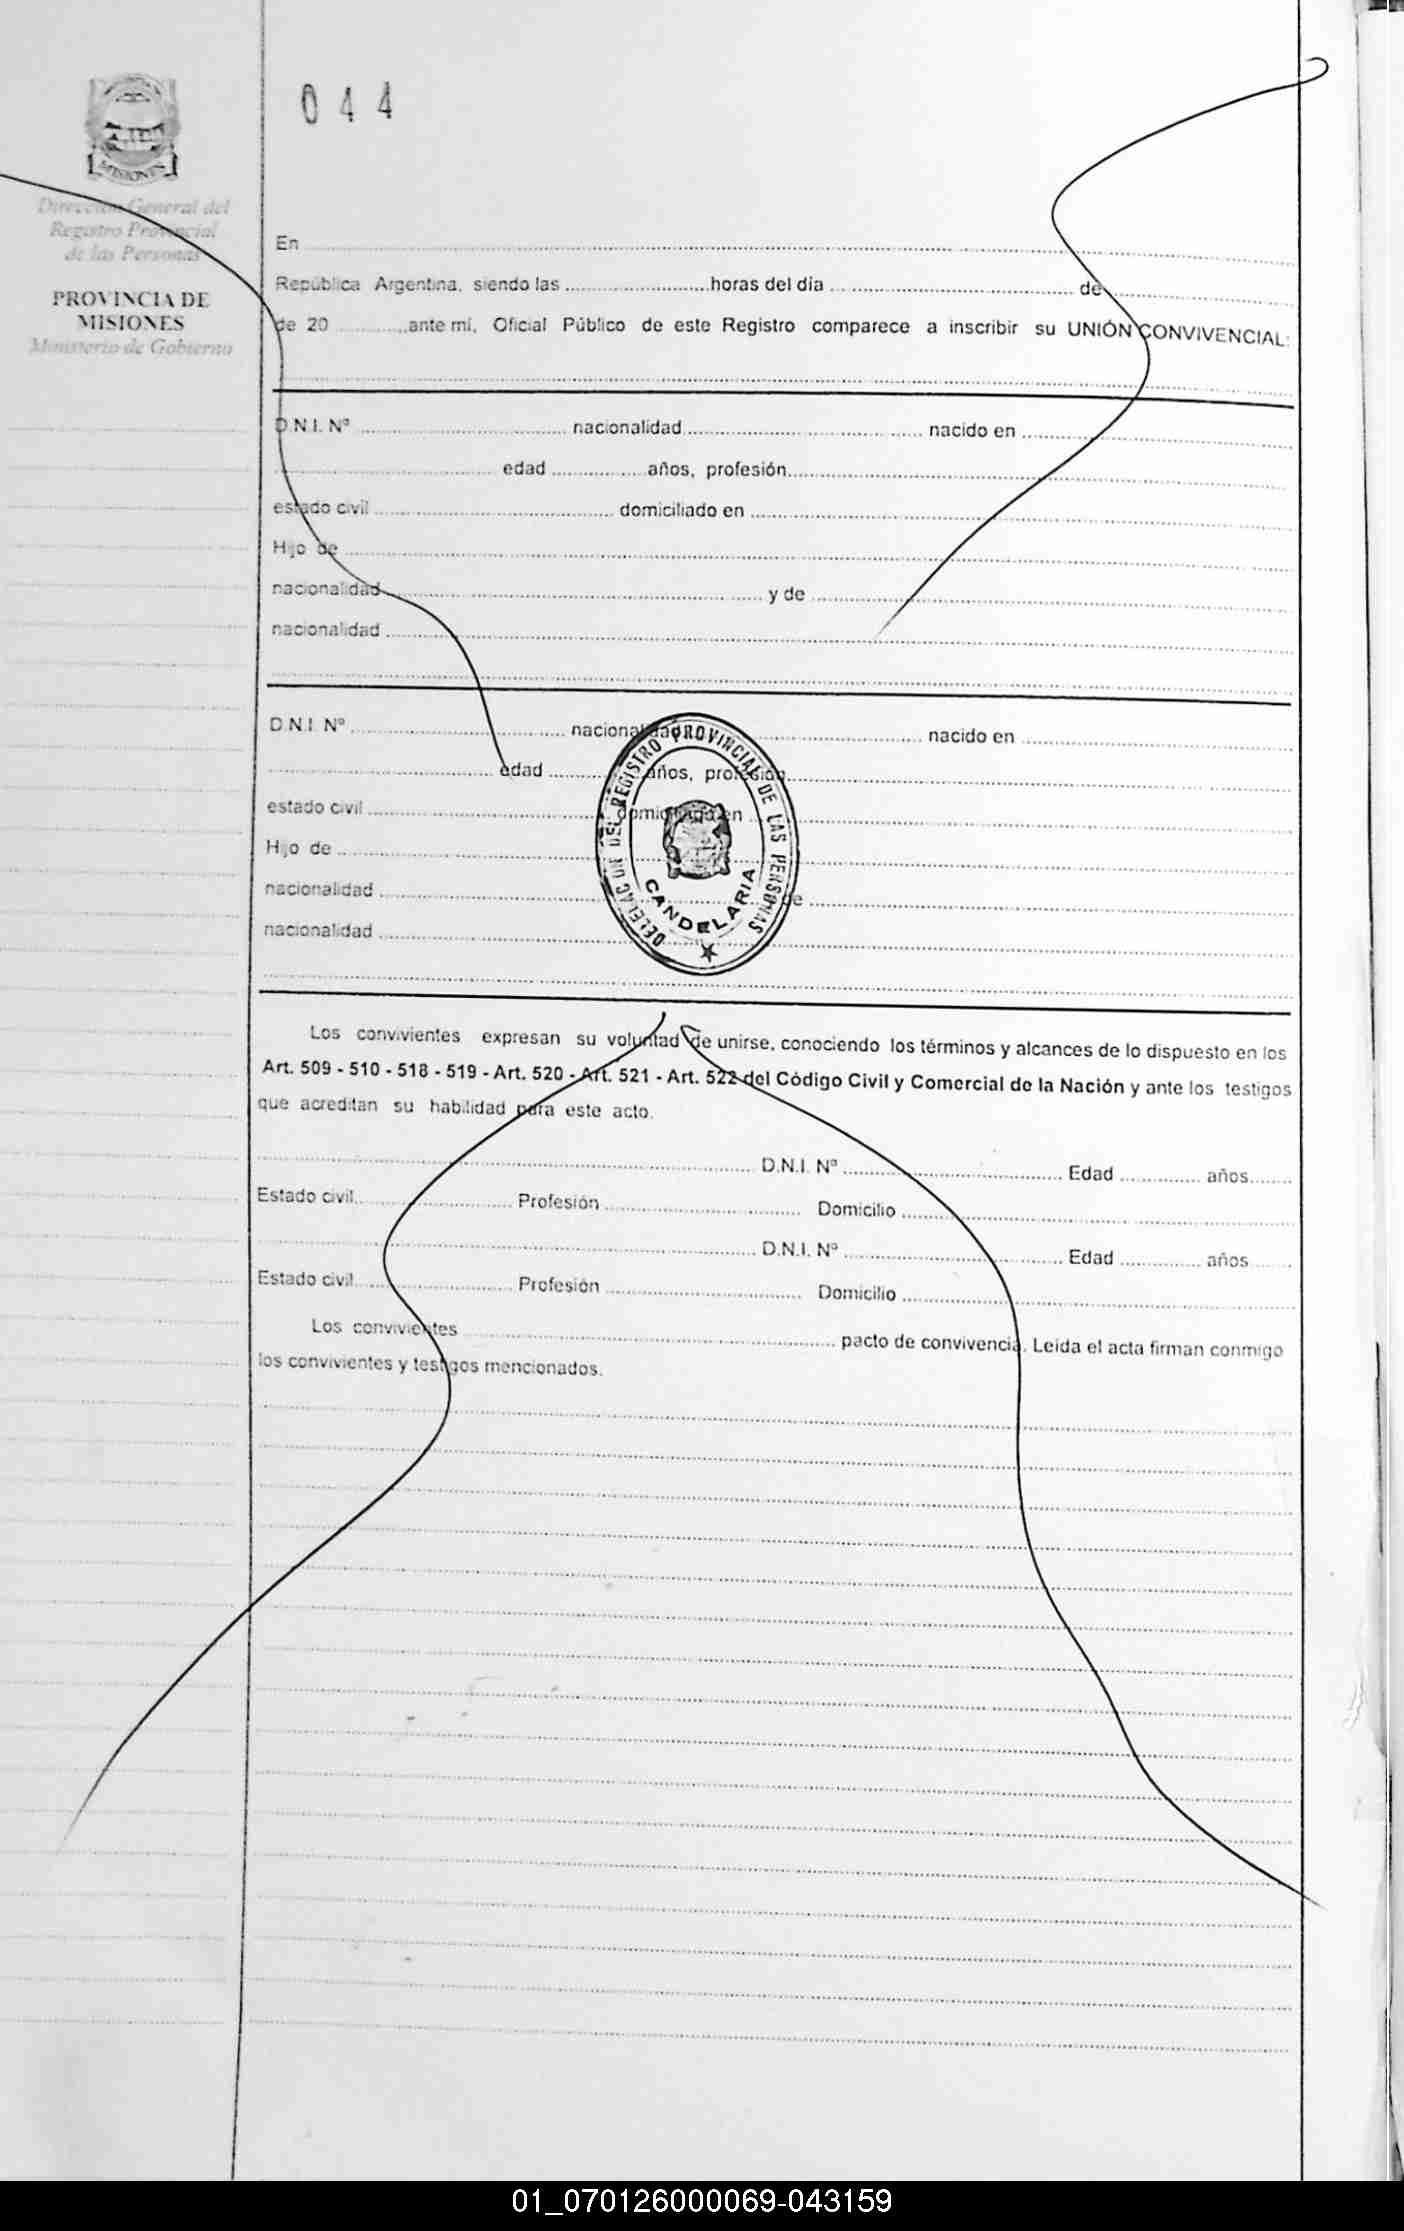 044
MISIONES
Dirección General del
Registro Provincial
de las Personas
PROVINCIA DE
MISIONES
Ministerio de Gobierno
En
República Argentina, siendo las horas del día de
de 20 ante mí, Oficial Público de este Registro comparece a inscribir su UNIÓN CONVIVENCIAL:
D.N.I. Nº nacionalidad nacido en
edad años, profesión
estado civil domiciliado en
Hijo de
nacionalidad y de
nacionalidad
D.N.I. Nº nacionalidad nacido en
edad años, profesión
estado civil domiciliado en
Hijo de
nacionalidad de
nacionalidad
DELEGACION DEL REGISTRO PROVINCIAL DE LAS PERSONAS
CANDELARIA
Los convivientes expresan su voluntad de unirse, conociendo los términos y alcances de lo dispuesto en los
Art. 509 - 510 - 518 - 519 - Art. 520 - Art. 521 - Art. 522 del Código Civil y Comercial de la Nación y ante los testigos
que acreditan su habilidad para este acto.
D.N.I. Nº Edad años
Estado civil Profesión Domicilio
D.N.I. Nº Edad años
Estado civil Profesión Domicilio
Los convivientes pacto de convivencia. Leída el acta firman conmigo
los convivientes y testigos mencionados.
01_070126000069-043159